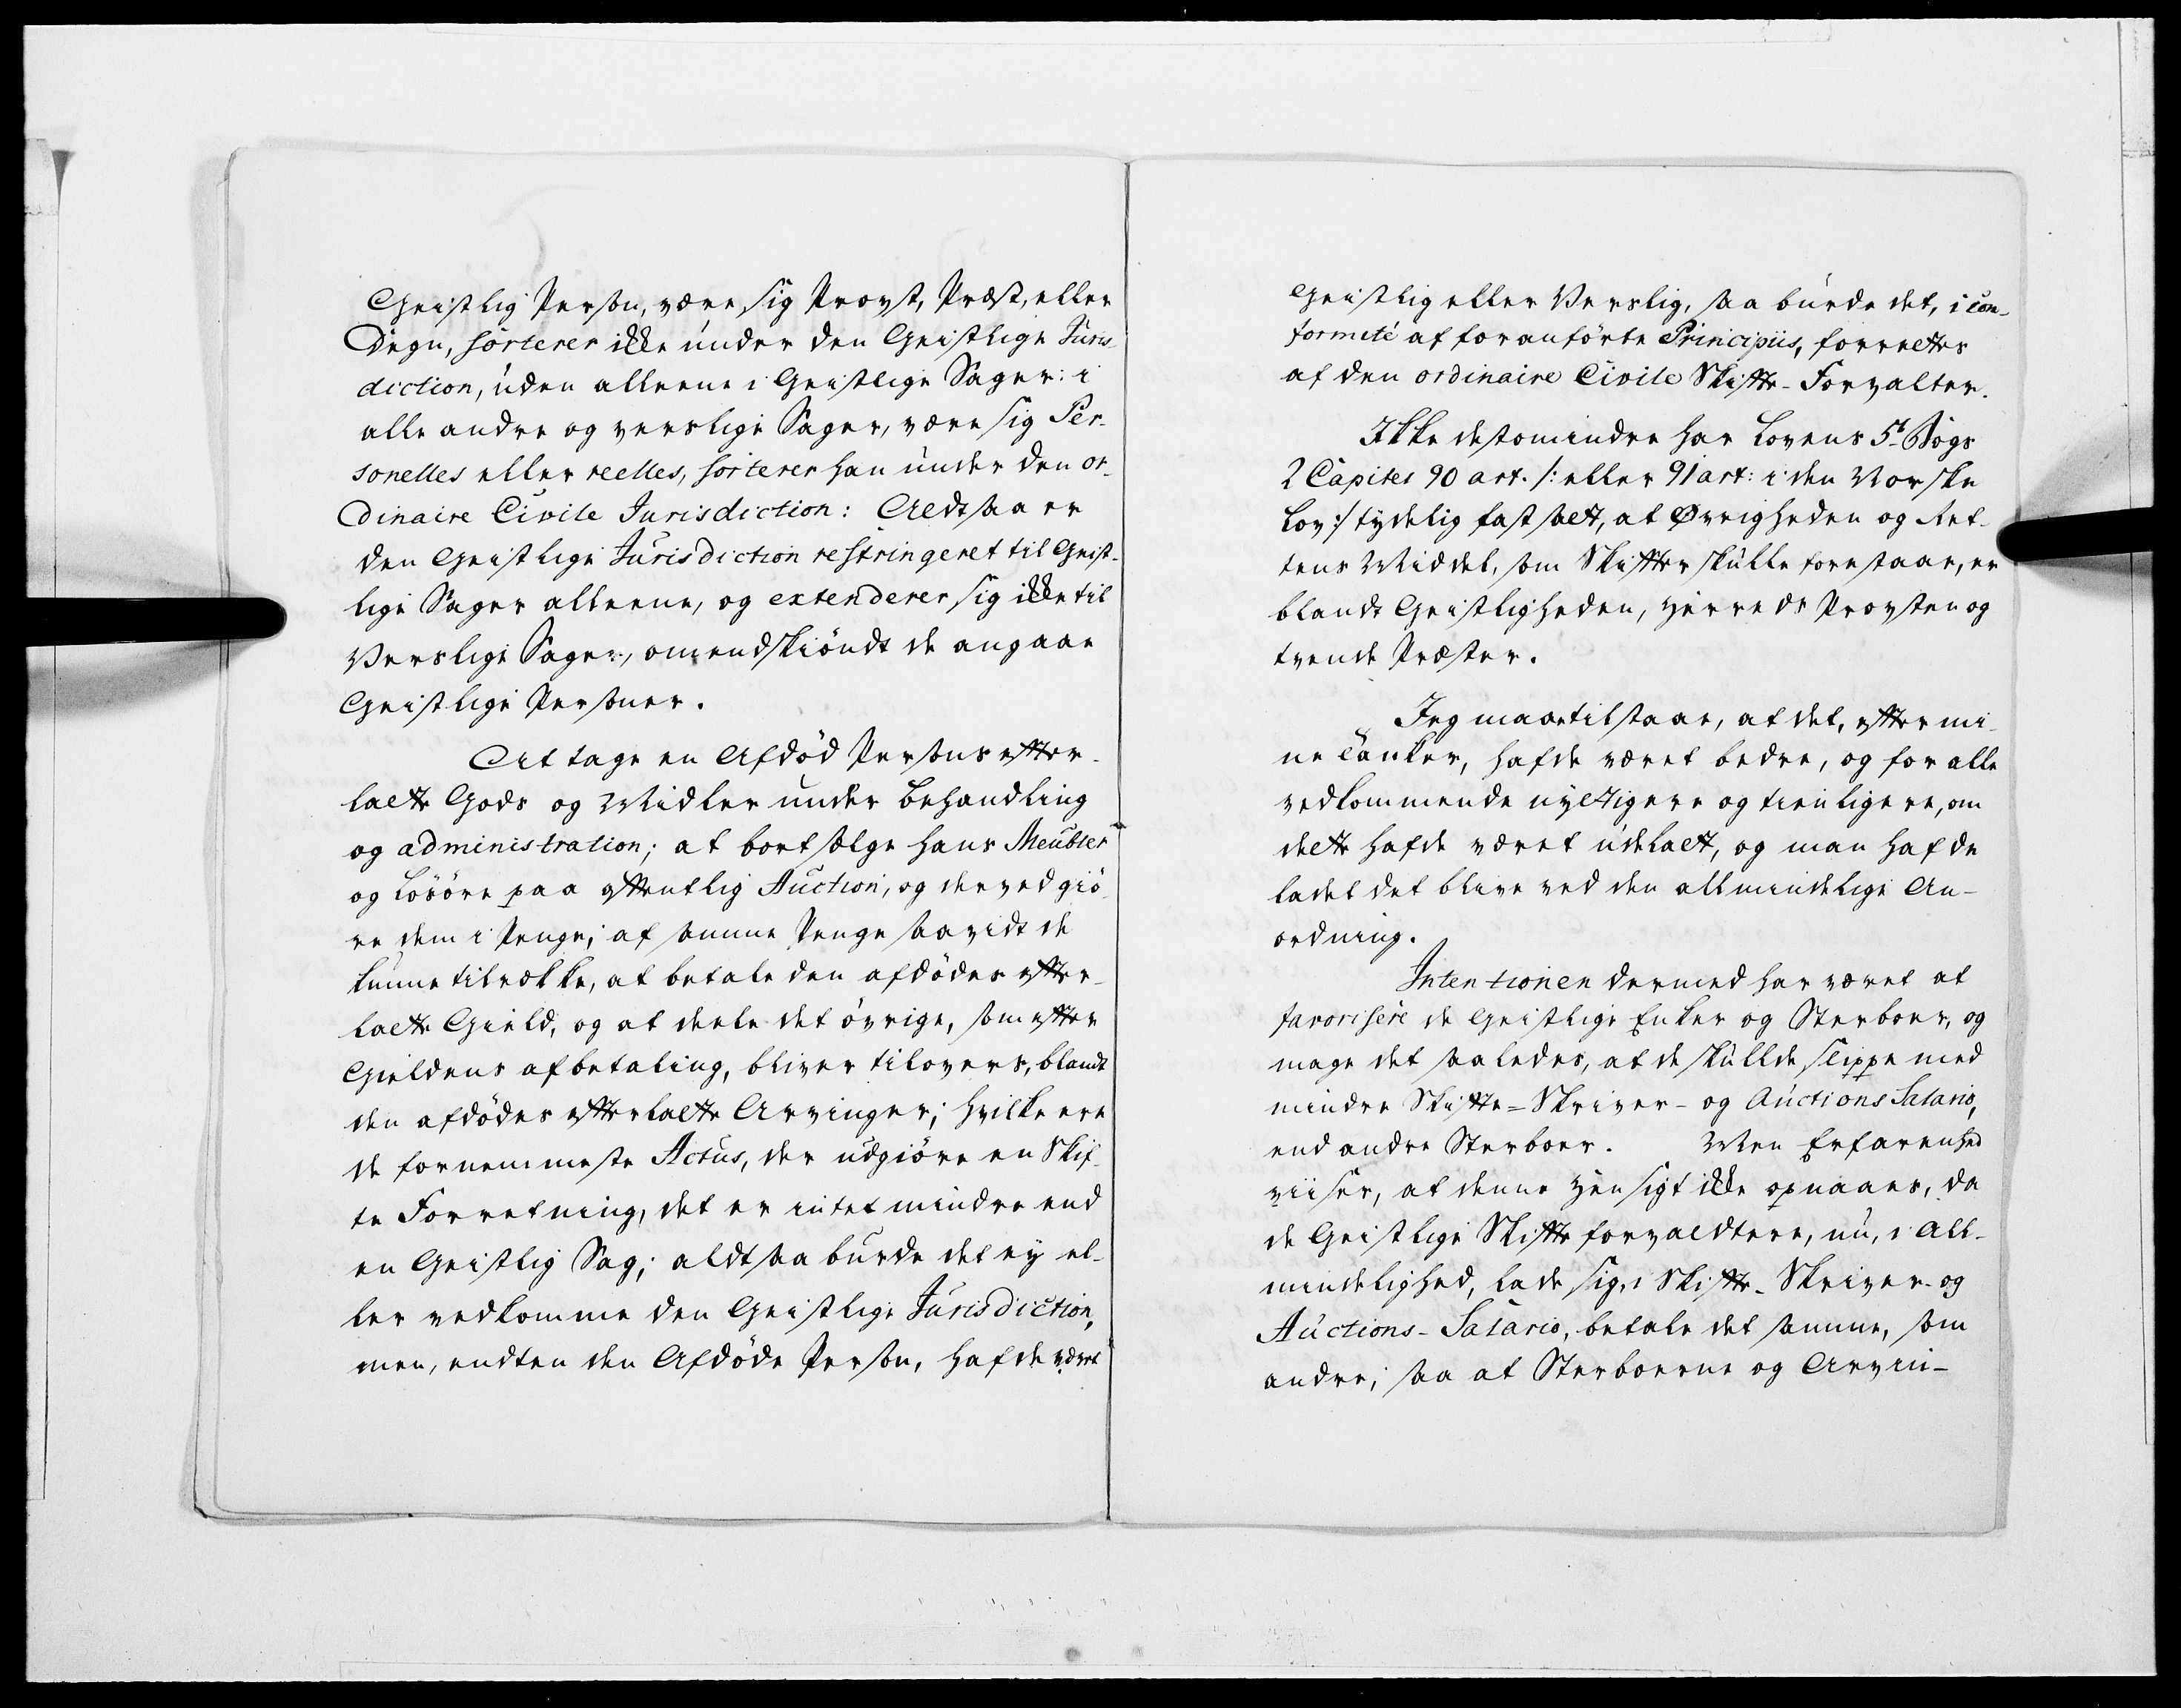 Geistlig Person, være sig Provst, Præst, eller
Degn, sorterer ikke under den Geistlige Juris-
diction, uden alleene i Geistlige Sager: i
alle andre og verslige Sager, være sig Per-
sonelles eller reelles, sorterer han under den or-
dinaire Civile Jurisdiction: Altsaa er
den Geistlige Jurisdiction restringeret til Geist-
lige Sager alleene, og extenderer sig ikke til
Verslige Sager, omendskiöndt de angaae
Geistlige Personer.
At tage en Afdöd Persons efter-
ladte Gods og Midler under behandling
og administration; at bortsælge hans Meubler
og Lösöre paa offentlig Auction, og derved giö-
re dem i Penge; af samme Penge saavidt de
kunne tilrække, at betale den afdödes efter-
ladte Gield, og at deele det övrige, som efter
Gieldens afbetaling, bliver tilovers, blandt
den afdödes efterladte Arvinger; hvilke ere
de fornemmeste Actus, der udgiöre en Skif-
te Forretning, det er intet mindre end
en Geistlig Sag; aldtsaa burde det ey el-
ler vedkomme den Geistlige Jurisdiction,
men, endten den Afdöde Person, hafde været
Geistlig eller Verslig, saa burde det, i con-
formeté af foranförte Principiis, forrettes
af den ordinaire Civile Skifte-Forvalter.
Ikke destomindre har Lovens 5t Bogs
2 Capites 90 art. /: eller 91 art: i den Norske
Lov :/ tydelig fastsadt, at Øvrigheden og Ret-
tens Middel, som Skifter skulle forestaae, er
blandt Geistligheden, Herreds Provsten og
tvende Præster.
Jeg maae tilstaae, at det, efter mi-
ne Tanker, hafde været bedre, og for alle
vedkommende nyttigere og tienligere, om
dette hafde været udeladt, og man hafde
ladet det blive ved den allmindelige An-
ordning.
Intentionen dermed har været at
favorisere de Geistlige Enker og Sterboer, og
mage det saaledes, at de skullde slippe med
mindre Skifte=Skriver- og Auctions Salario,
end andre Sterboer. Men Erfarenhed
viiser, at denne Hensigt ikke opnaaes, da
de Geistlige Skifte forvaldtere, nu, i All-
mindelighed, lade sig, i Skifte-Skriver- og
Auctions-Salario, betale det samme, som
andre; saa at Sterboerne og Arvin-